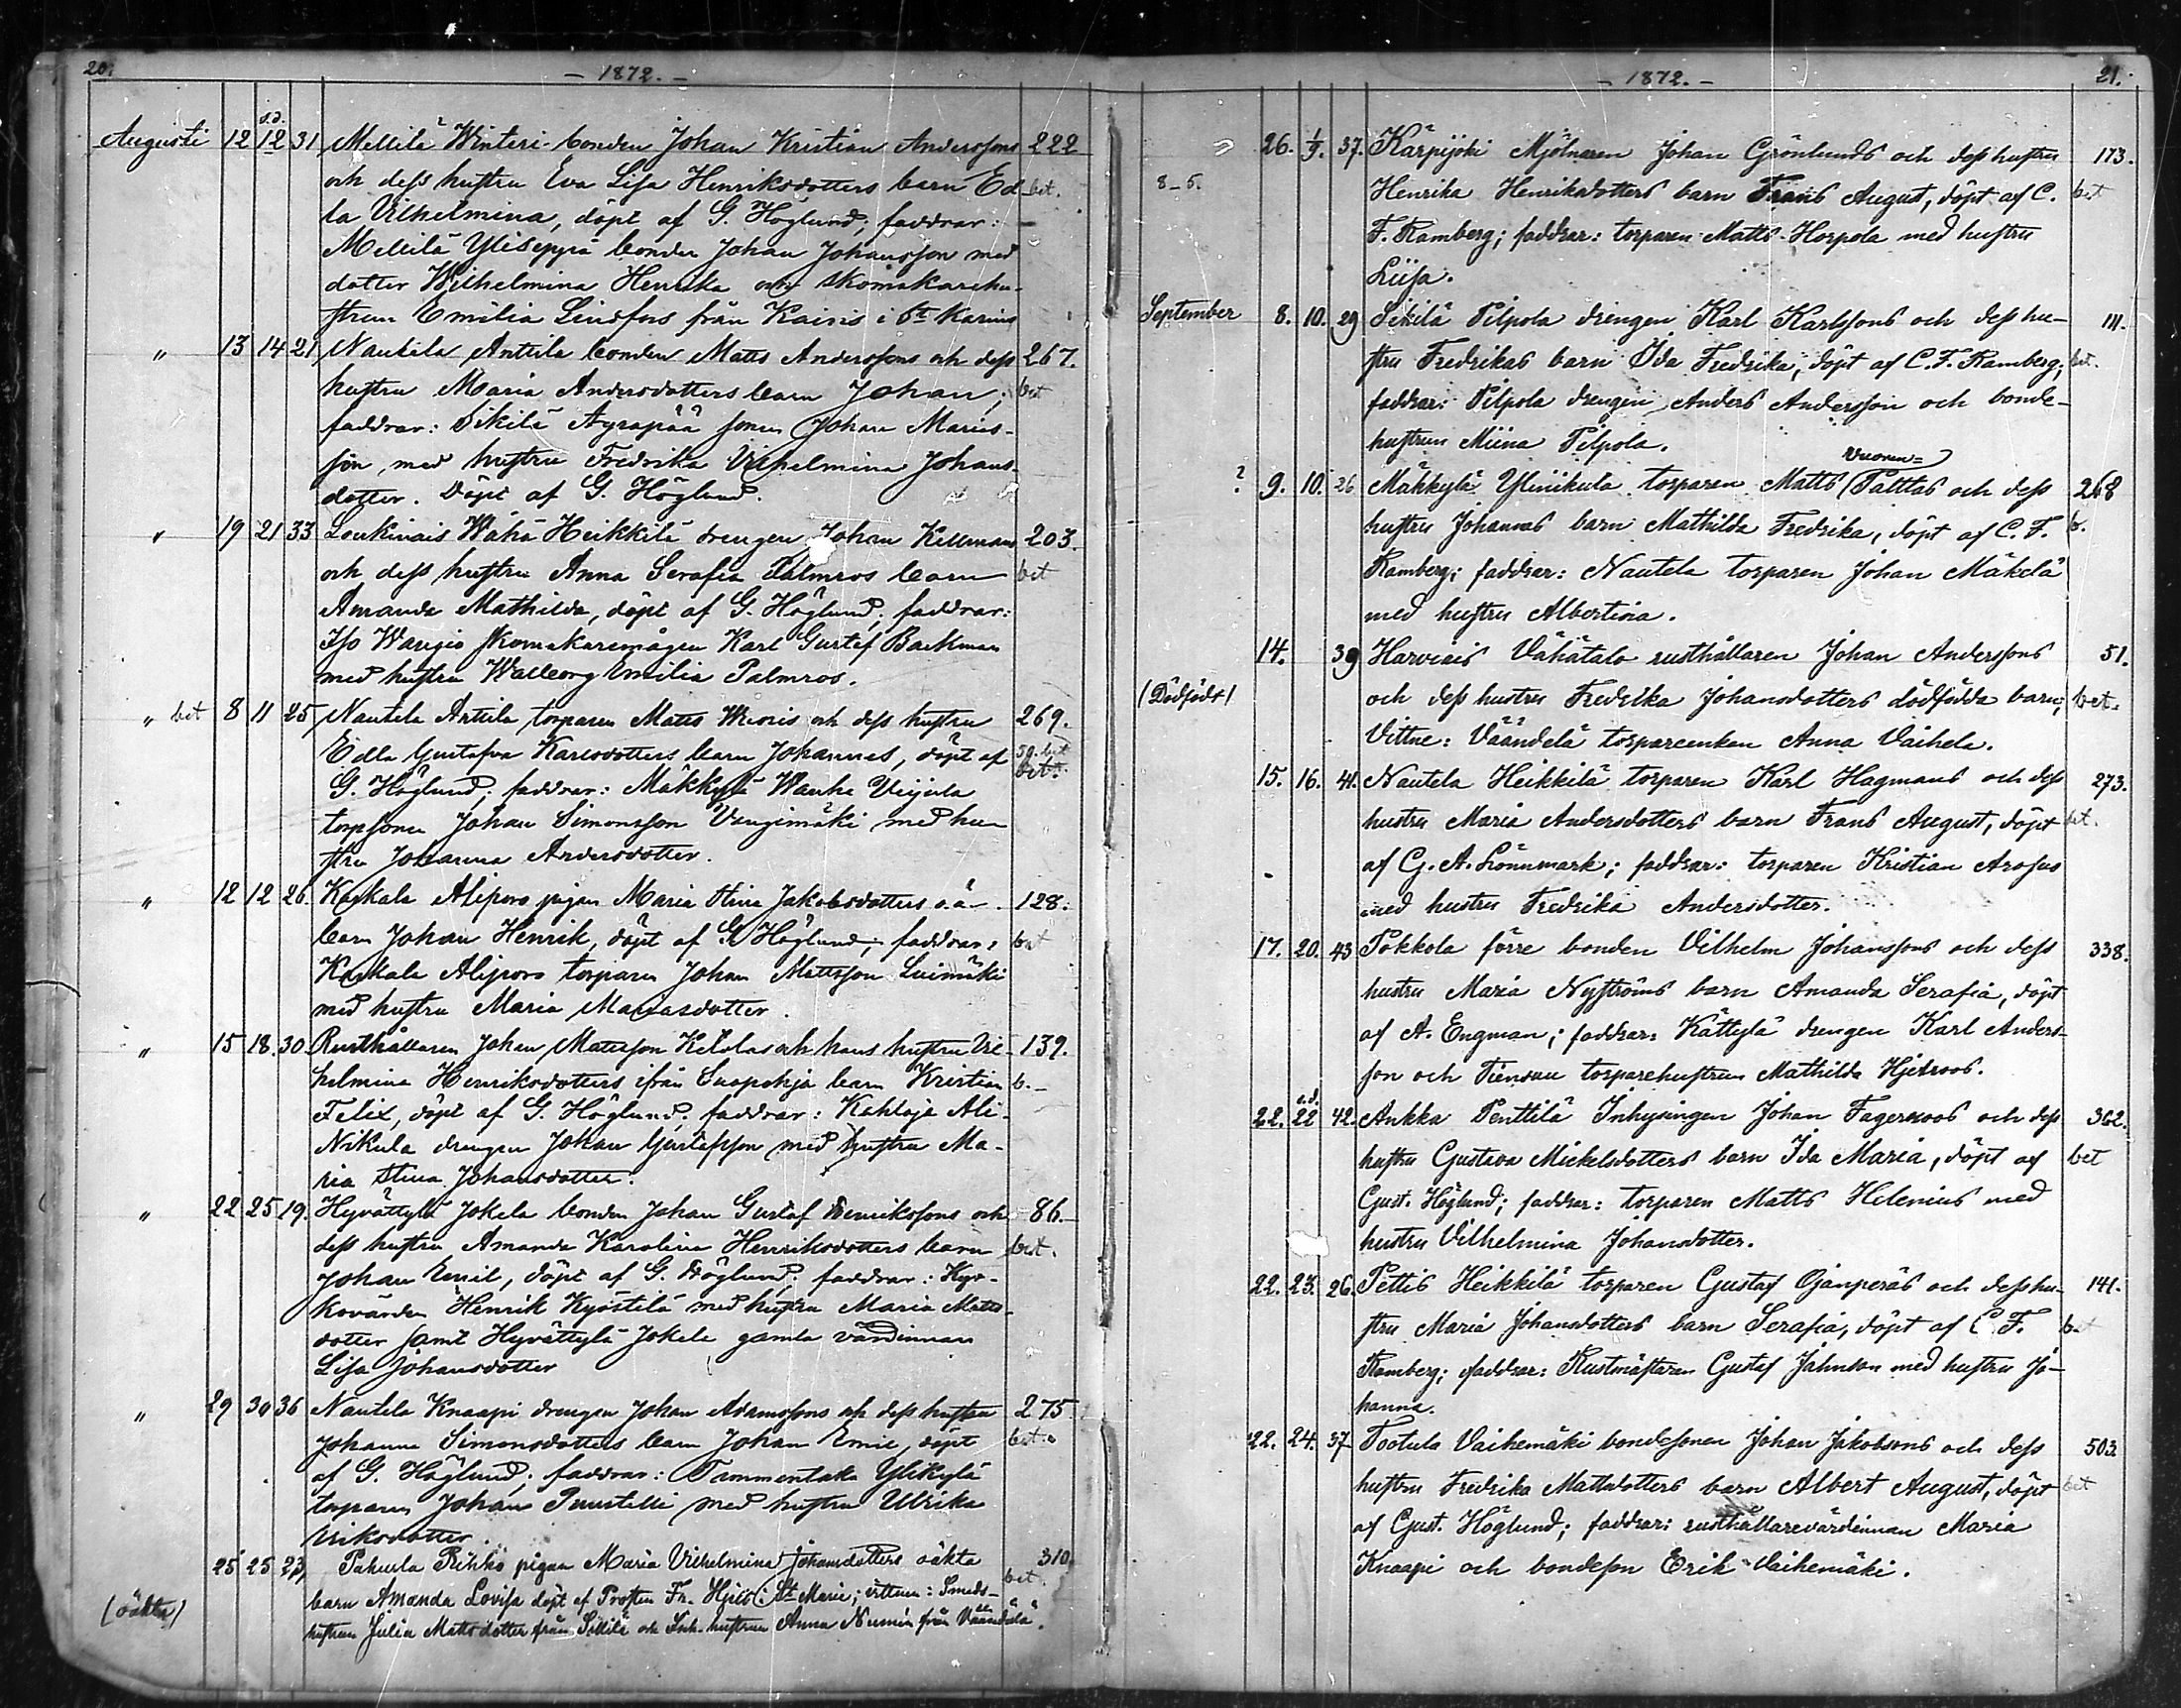 20.
— 1872. —
Augusti 12 s.d. 12 31 Mellilä Winteri bonden Johan Kristian Anderssons 222
och dess hustru Eva Lisa Henriksdotters barn Ed- bet.
la Vilhelmina, döpt af G. Höglund; faddrar:
Mellilä Yliseppä bonden Johan Johansson med
dotter Wilhelmina Henrika och skomakarehu-
strun Emilia Lindfors från Kairis i St Karins
" 13 14 21 Nautela Anttila bonden Matts Anderssons och dess 267.
hustru Maria Andersdotters barn Johan; bet
faddrar: Sikilä Äyräpää sonen Johan Marius-
son med hustru Fredrika Vilhelmina Johans-
dotter. Döpt af G. Höglund.
" 19 21 33 Loukinais Wähä Heikkilä drengen Johan Kellmans 203.
och dess hustru Anna Serafia Palmros barn bet
Amanda Mathilda, döpt af G. Höglund; faddrar:
Iso Wangio skomakaremågen Karl Gustaf Backman
med hustru Walborg Emilia Palmros.
" bet 8 11 25 Nautela Anttila torparen Matts och dess hustru 269.
Edla Gustafva Karlsdotters barn Johannes, döpt af bet
G. Höglund; faddrar: Mäkkylä Wanha Veijula bet.
torpsonen Johan Simonsson Vangimäki med hu-
stru Johanna Andersdotter.
" 12 12 26. Kaskala Aliporo pigan Maria Stina Jakobsdotters o.ä. 128.
barn Johan Henrik, döpt af G. Höglund; faddrar: bet
Kaskala Aliporo torparen Johan Mattsson Luimäki
med hustru Maria Mariasdotter.
" 15 18. 30. Rusthållaren Johan Mattsson Ketolas och hans hustru Vil- 139.
helmina Henriksdotters ifrån Suopohja barn Kristian b.
Felix, döpt af G. Höglund; faddrar: Kahloja Ali-
Nikula drengen Johan Gustafsson med hustru Ma-
ria Stina Johansdotter.
" 22 25 19. Hyvättylä Jokela bonden Johan Gustaf Henrikssons och 86.
dess hustru Amanda Karolina Henriksdotters barn bet.
Johan Emil, döpt af G. Höglund; faddrar: Kyr-
kovärden Henrik Kyöstilä med hustru Maria Matts-
dotter samt Hyvättylä Jokela gamla värdinnan
Lisa Johansdotter
" 29 30 36 Nautela Knaapi drengen Johan Adamssons och dess hustru 275
Johanna Simonsdotters barn Johan Emil, döpt bet.
af G. Höglund; faddrar: Tammentaka Ylikylä
torparen Johan Puustelli med hustru Ulrika
Eriksdotter.
25 25 23, Pahurla Rihko pigan Maria Vilhelmina Johansdotters oäkta 310.
(oäkta) barn Amanda Lovisa döpt af Prosten Fr. Hjelt i St Marie; vittnen: Smeds- bet.
hustrun Julia Mattsdotter från Sillilä och Inh. hustrun Anna Numin från Väändälä.
— 1872. —
21.
26. 1/9. 37. Kärpijoki Mjölnaren Johan Grönlunds och dess hustru 173.
8_5. Henrika Henriksdotters barn Frans August, döpt af C. bet
F. Ramberg; faddrar: torparen Matts Horpola med hustru
Liisa.
September 8. 10. 29 Sikilä Pilpola drengen Karl Karlssons och dess hu- 111.
stru Fredrikas barn Ida Fredrika, döpt af C. F. Ramberg; bet.
faddrar: Pilpola drengen Anders Andersson och bonde-
hustrun Miina Pilpola.
Vuoren=
? 9. 10. 26 Mäkkylä Ylinikula torparen Matts Palttas och dess 268
hustru Johannas barn Mathilda Fredrika, döpt af C. F. b.
Ramberg; faddrar: Nautela torparen Johan Mäkelä
med hustru Albertina.
14. 39 Harvais Vähätalo rusthållaren Johan Anderssons 51.
(Dödfödt) och dess hustru Fredrika Johansdotters dödfödda barn; bet.
Vittne: Väändelä torpareenkan Anna Vaihela.
15. 16. 41. Nautela Heikkilä torparen Karl Hagmans och dess 273.
hustru Maria Andersdotters barn Frans August, döpt bet.
af G. A. Lönnmark; faddrar: torparen Kristian Arojus
med hustru Fredrika Andersdotter.
17. 20. 43 Pokkola förre bonden Vilhelm Johanssons och dess 338.
hustru Maria Nyströms barn Amanda Serafia, döpt
af A. Engman; faddrar: Kättylä drengen Karl Anders-
son och Tiensuu torparehustrun Mathilda Hjelroos.
22. s.d. 22 42. Ankka Penttilä Inhysingen Johan Fagerroos och dess 362.
hustru Gustava Mickelsdotters barn Ida Maria, döpt af bet
Gust. Höglund; faddrar: torparen Matts Helenius med
hustru Vilhelmina Johansdotter.
22. 23. 26. Pettis Heikkilä torparen Gustaf Ojanperäs och dess hu- 141.
stru Maria Johansdotters barn Serafia, döpt af C. F. b.
Ramberg; faddrar: Rustmästaren Gustaf Jahnson med hustru Jo-
hanna.
22. 24. 37 Tootula Vaihemäki bondesonen Johan Jakobsons och dess 503.
hustru Fredrika Mattsdotters barn Albert August, döpt bet
af Gust. Höglund; faddrar: rusthållarevärdinnan Maria
Knaapi och bondeson Erik Vaihemäki.